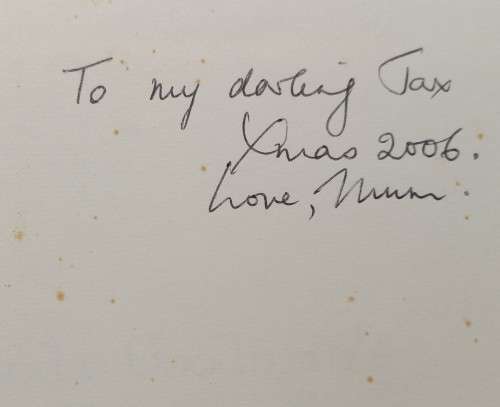 To my darling Jax
Xmas 2006.
Love, Mum.